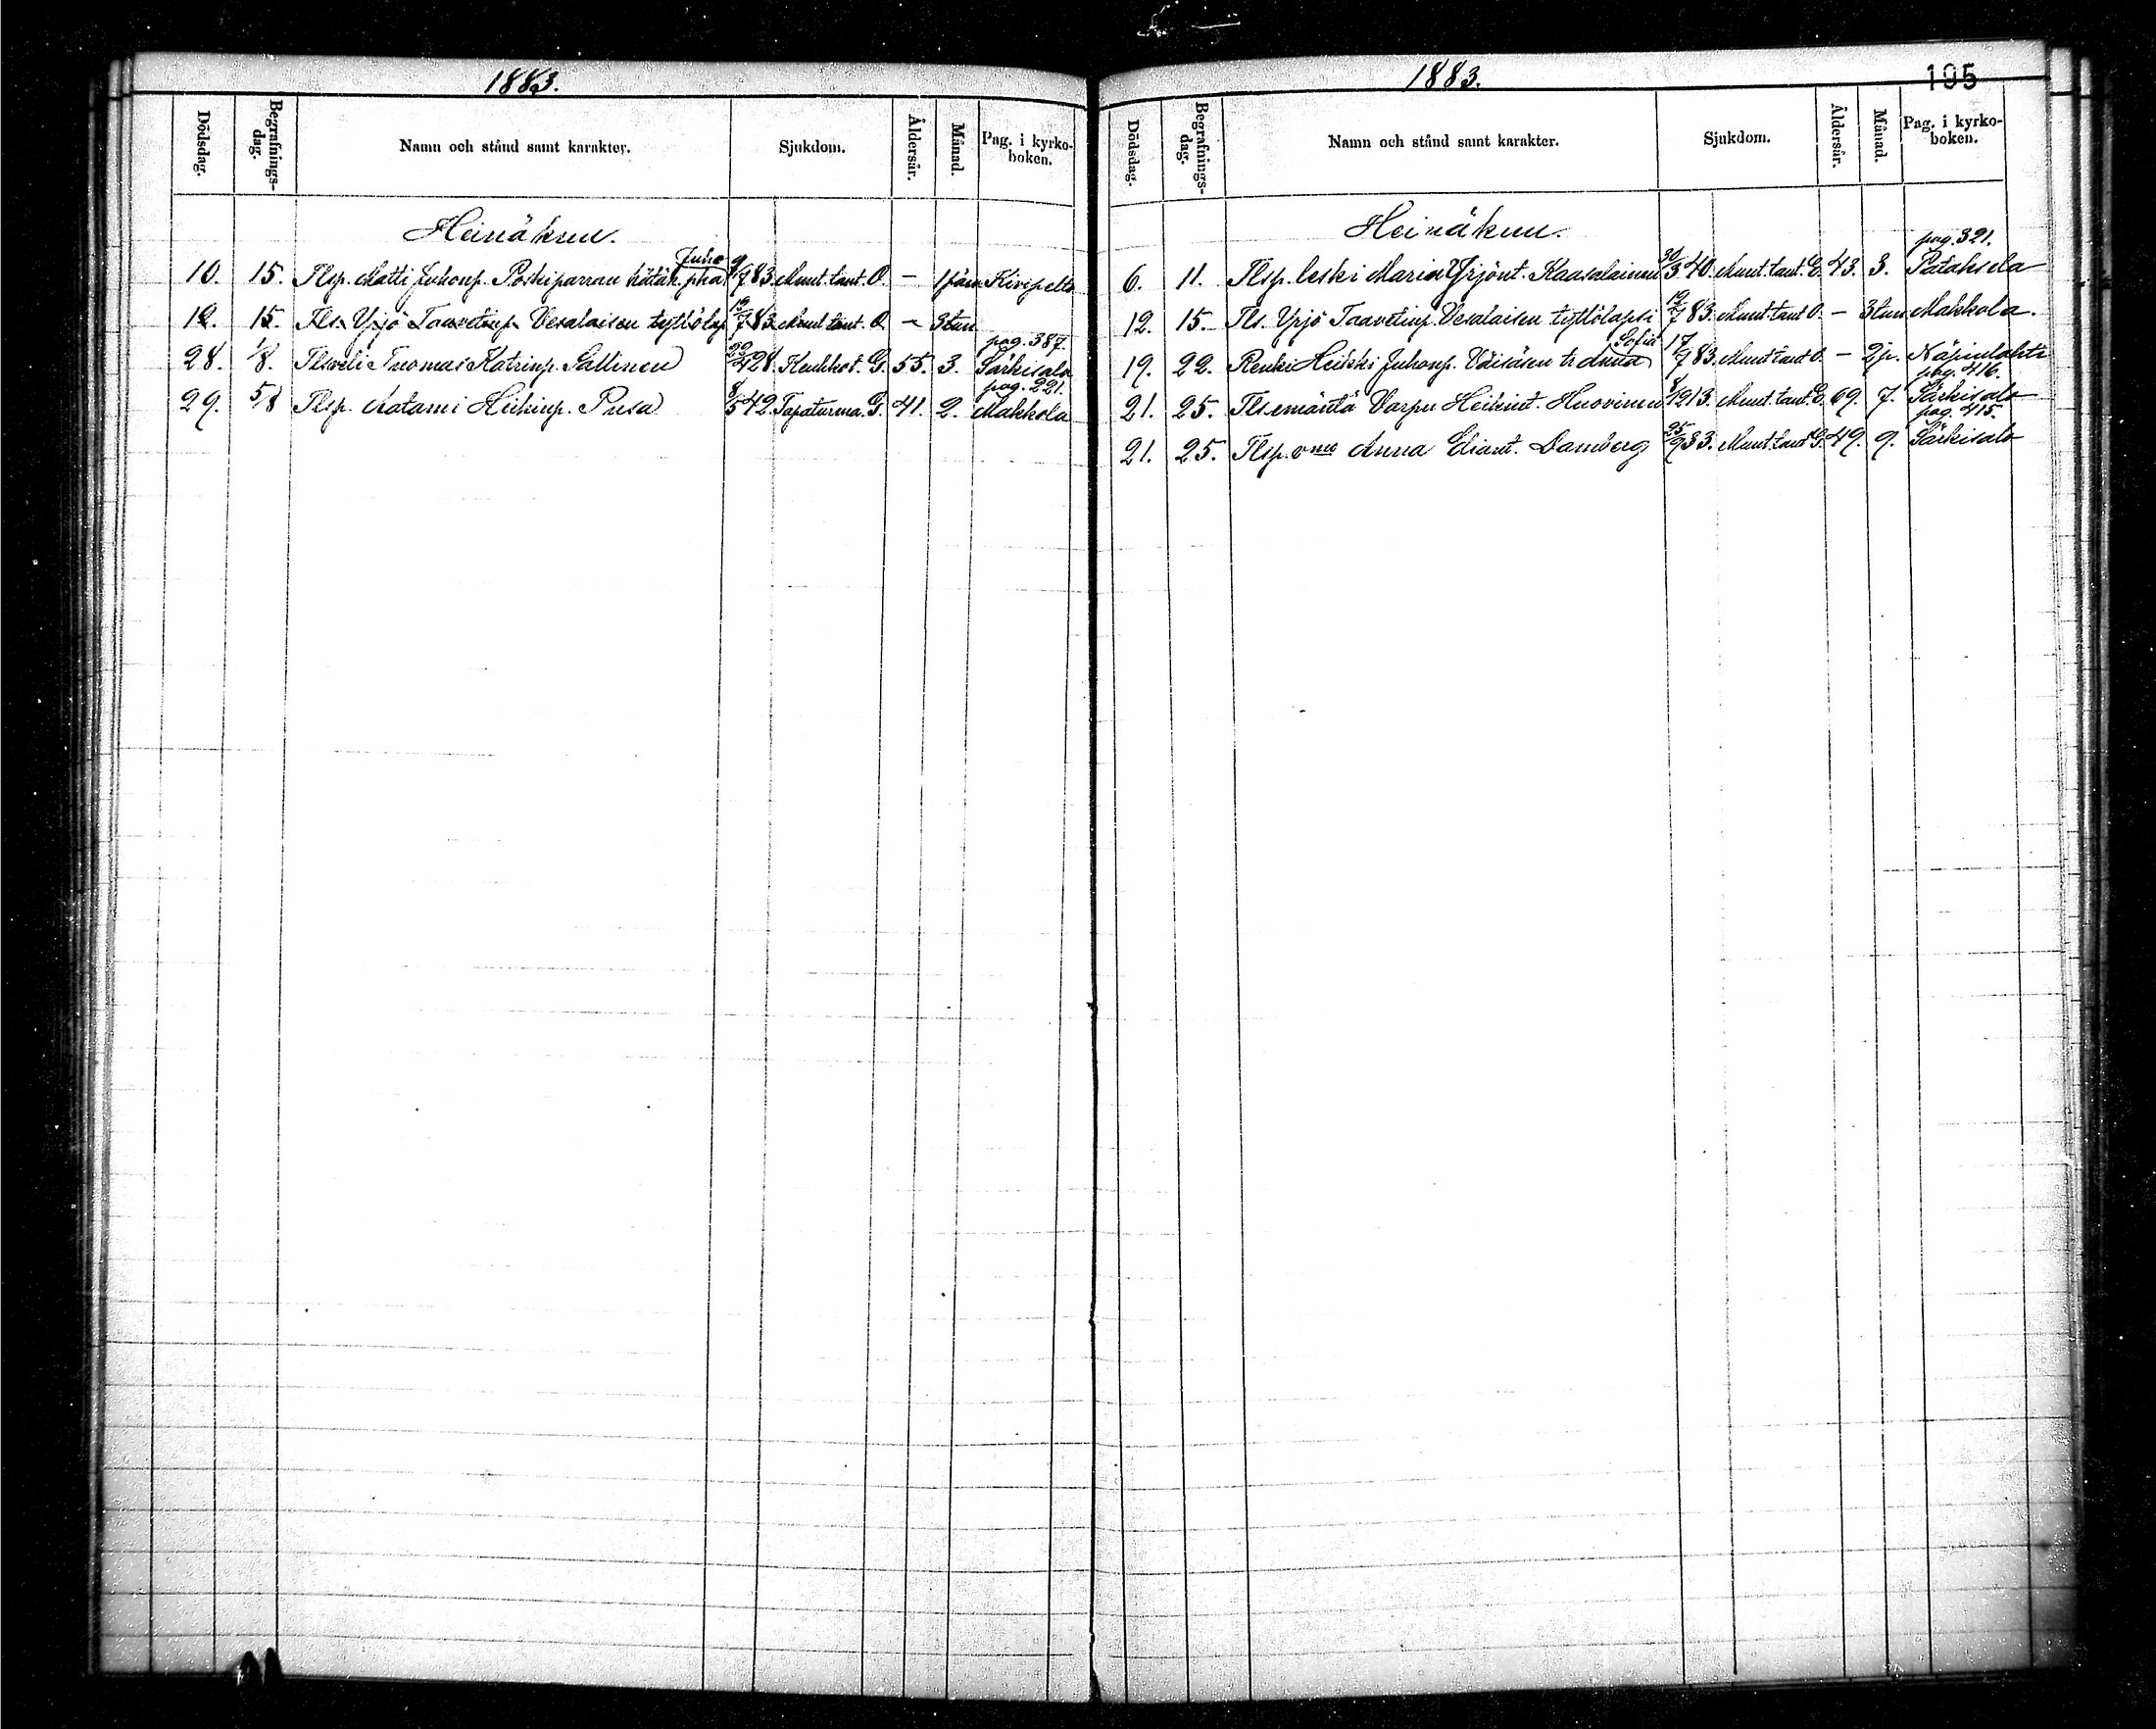 1883.
Dödsdag. Begrafnings-dag. Namn och stånd samt karakter. Sjukdom. Åldersår. Månad. Pag. i kyrko-boken.
Heinäkuu.
Juho
10. 15. Tlsp. Matti Juhonp. Poskiparran hätäk. pka 9/7 83. Muut. taut. O. — 1 päiv Kivipelto
12. 15. Tls. Yrjö Taavetinp. Vesalaisen tyttölap 12/7 83. Muut taut. O. — 3 tun
pag. 387.
28. 1/8. Tlsveli Tuomas Katrinp. Sallinen 22/4 28. Keuhkot. G. 55. 3. Särkisalo
pag. 221.
29. 5/8 Tlsp. Aatami Heikinp. Pusa 8/5 42. Tapaturma. G. 41. 2. Makkola
1883.
195
Dödsdag. Begrafnings-dag. Namn och stånd samt karakter. Sjukdom. Åldersår. Månad. Pag. i kyrko-boken.
Heinäkuu.
pag. 321.
6. 11. Tlsp. leski Maria Yrjönt. Kaasalainen 30/3 40. Muut. taut. E. 43. 3. Pataksela
12. 15. Tls. Yrjö Taavetinp. Vesalaisen tyttölapsi 12/7 83. Muut. taut O. — 3 tun Makkola.
Sofia
19. 22. Renki Heikki Juhonp. Väisäsen tr Anna 17/7 83. Muut taut O. — 2 p. Näpinlahti
pag. 416.
21. 25. Tls emäntä Varpu Heikint. Huovinen 8/12 13. Muut. taut. E. 69. 7. Särkisalo
pag. 415.
21. 25. Tlsp. vmo Anna Eliant. Damberg 25/9 33. Muut. taut G. 49. 9. Särkisalo